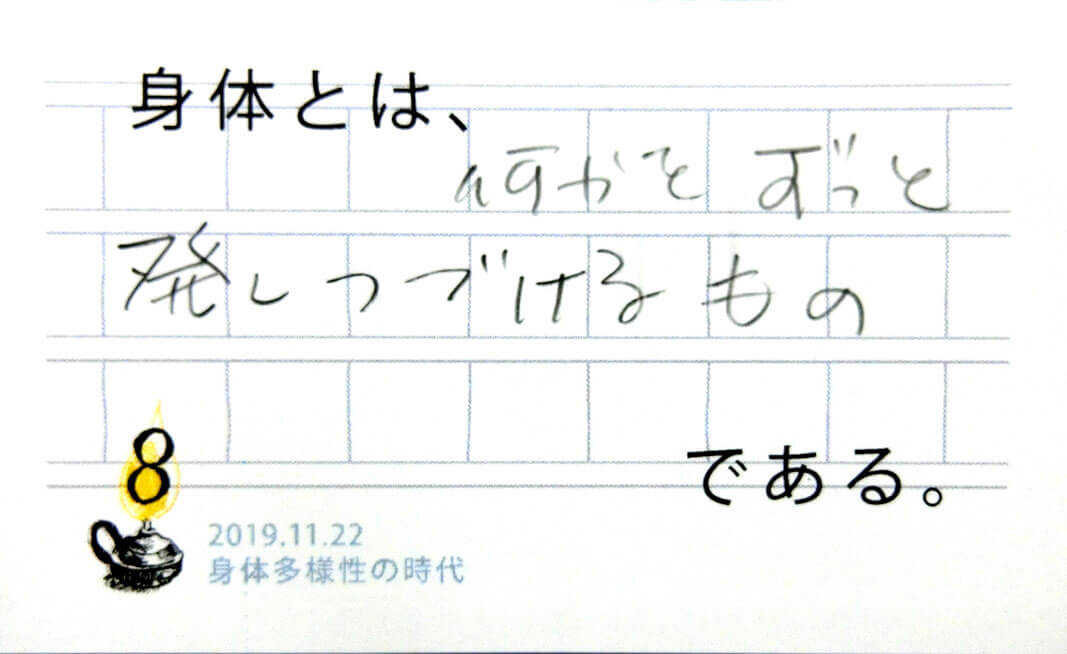 身体とは、
何かをずっと
発しつづけるもの
である。
8
2019.11.22
身体多様性の時代